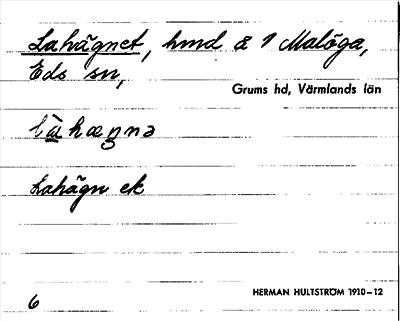 Lahägnet, hmd å 1 Malöga,
Eds sn,
Grums hd, Värmlands län
Lahägn ek
6
HERMAN HULTSTRÖM 1910–12